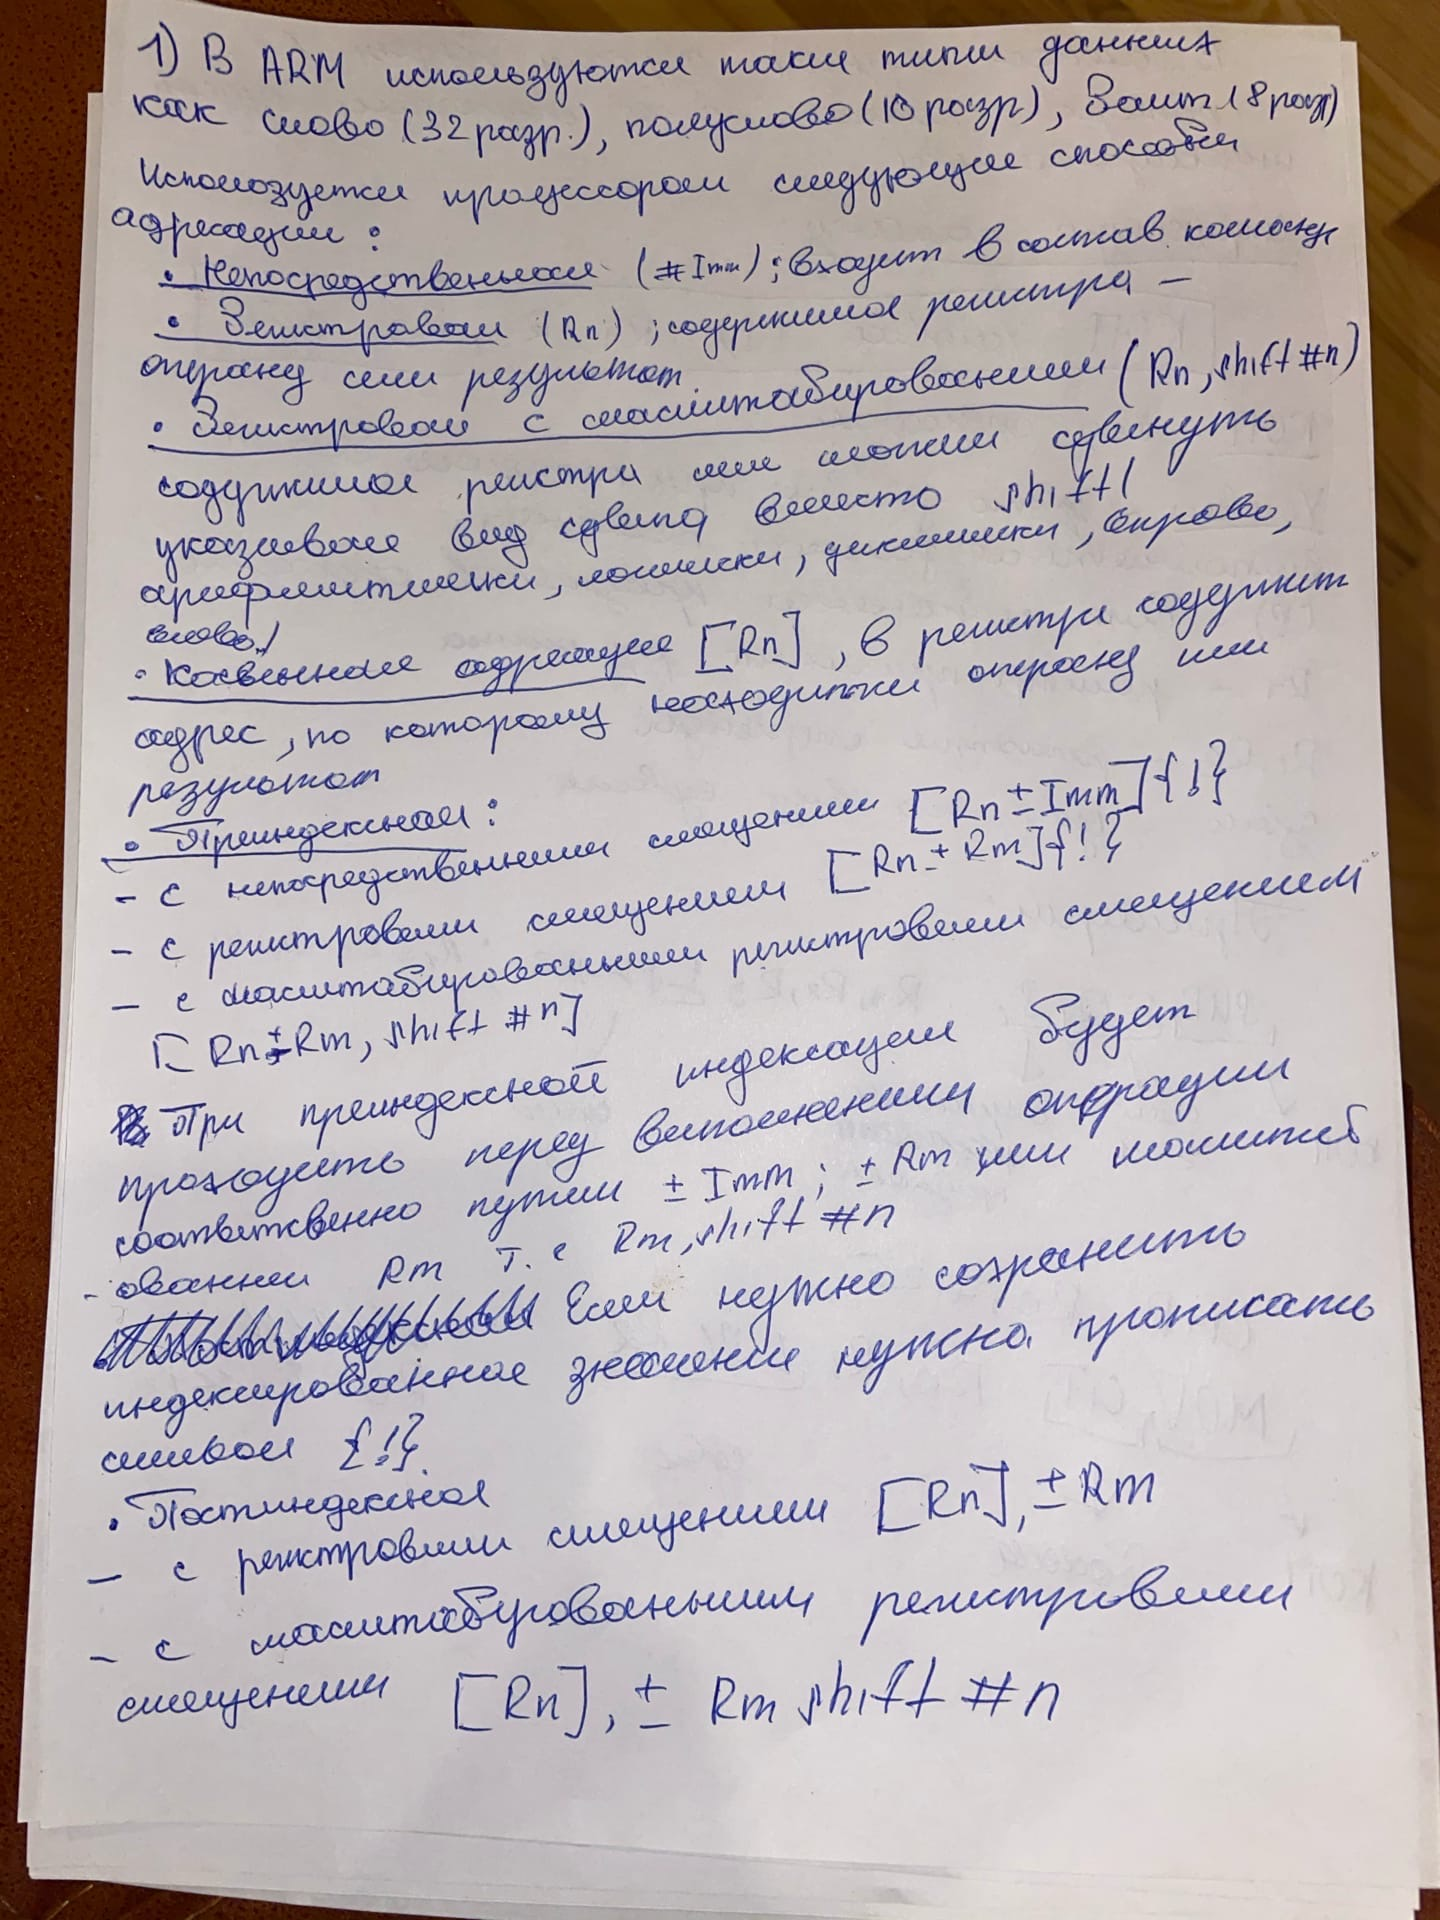 1) В ARM используются такие типы данных
как слово (32 разр.), полуслово (16 разр), Байт (8 разр)
Используется процессором следующие способы
адресации:
• Непосредственная (#Imm); входит в состав команды
• Регистровая (Rn); содержимое регистра –
операнд или результат.
• Регистровая с масштабированием (Rn, shift #n)
содержимое регистра мы можем сдвинуть
указывая вид сдвига вместо shift(
арифметически, логически, циклически, вправо,
влево)
• Косвенная адресация [Rn], в регистре содержит
адрес, по которому находиться операнд или
результат
• Преиндексная:
– с непосредственным смещением [Rn ± Imm]{!}
– с регистровым смещением [Rn ± Rm]{!}
– с масштабированным регистровым смещением
[Rn, ± Rm, shift #n]
При преиндексной индексации будет
проходить перед выполнением операции
соответственно путем ± Imm; ± Rm или масштаб
- ованней Rm т.е Rm, shift #n
Если нужно сохранить
индексированное значение нужно прописать
символ {!}.
• Постиндексная
– с регистровым смещением [Rn], ± Rm
– с масштабированным регистровым
смещением [Rn], ± Rm shift #n